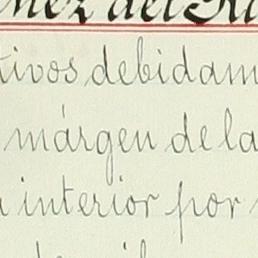 del
tivos debidam
márgen de la
interior por